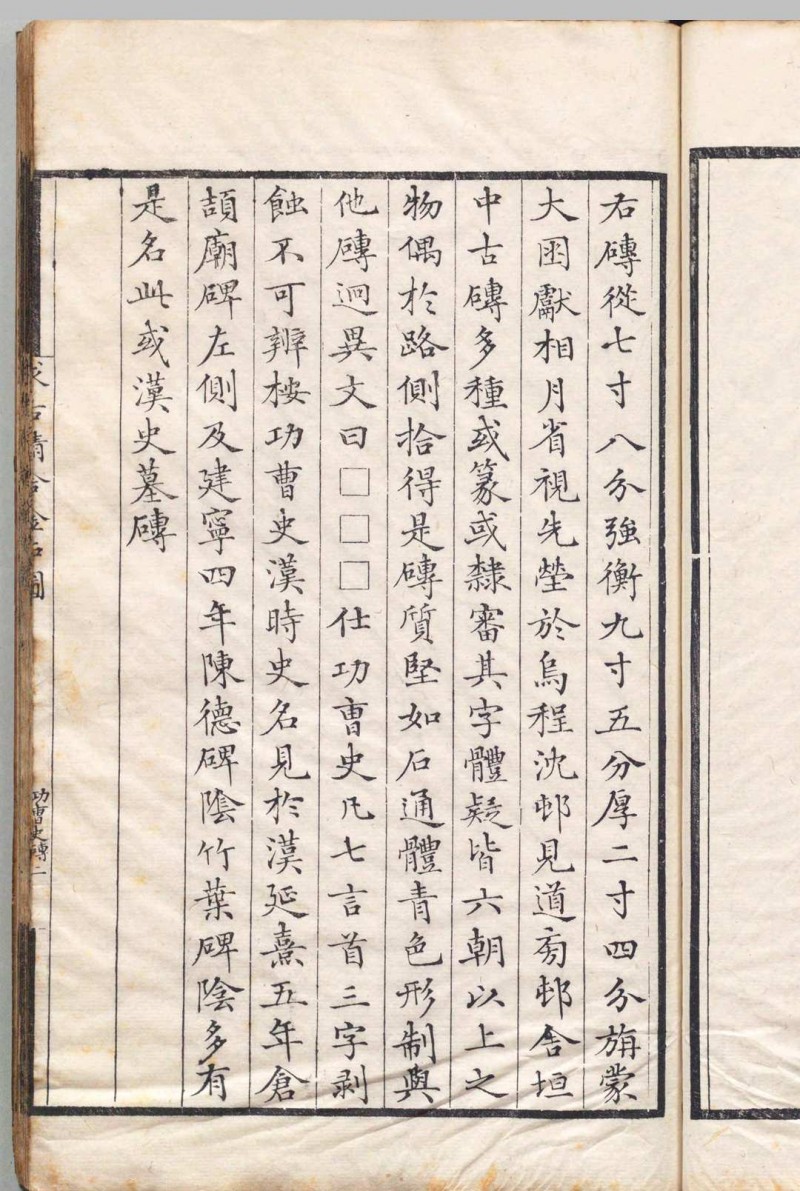 右磚從七寸八分強衡九寸五分厚二寸四分旃蒙
大困獻相月省視先塋於烏程沈邨見道旁邨舍垣
中古磚多種或篆或隸審其字體疑皆六朝以上之
物偶於路側拾得是磚質堅如石通體青色形制與
他磚迥異文曰□□□仕功曹史凡七言首三字剥
蝕不可辨桉功曹史漢時史名見於漢延熹五年倉
頡廟碑左側及建寧四年陳德碑陰竹葉碑陰多有
是名此或漢史墓磚
求古精舍金石圖
功曹史磚二